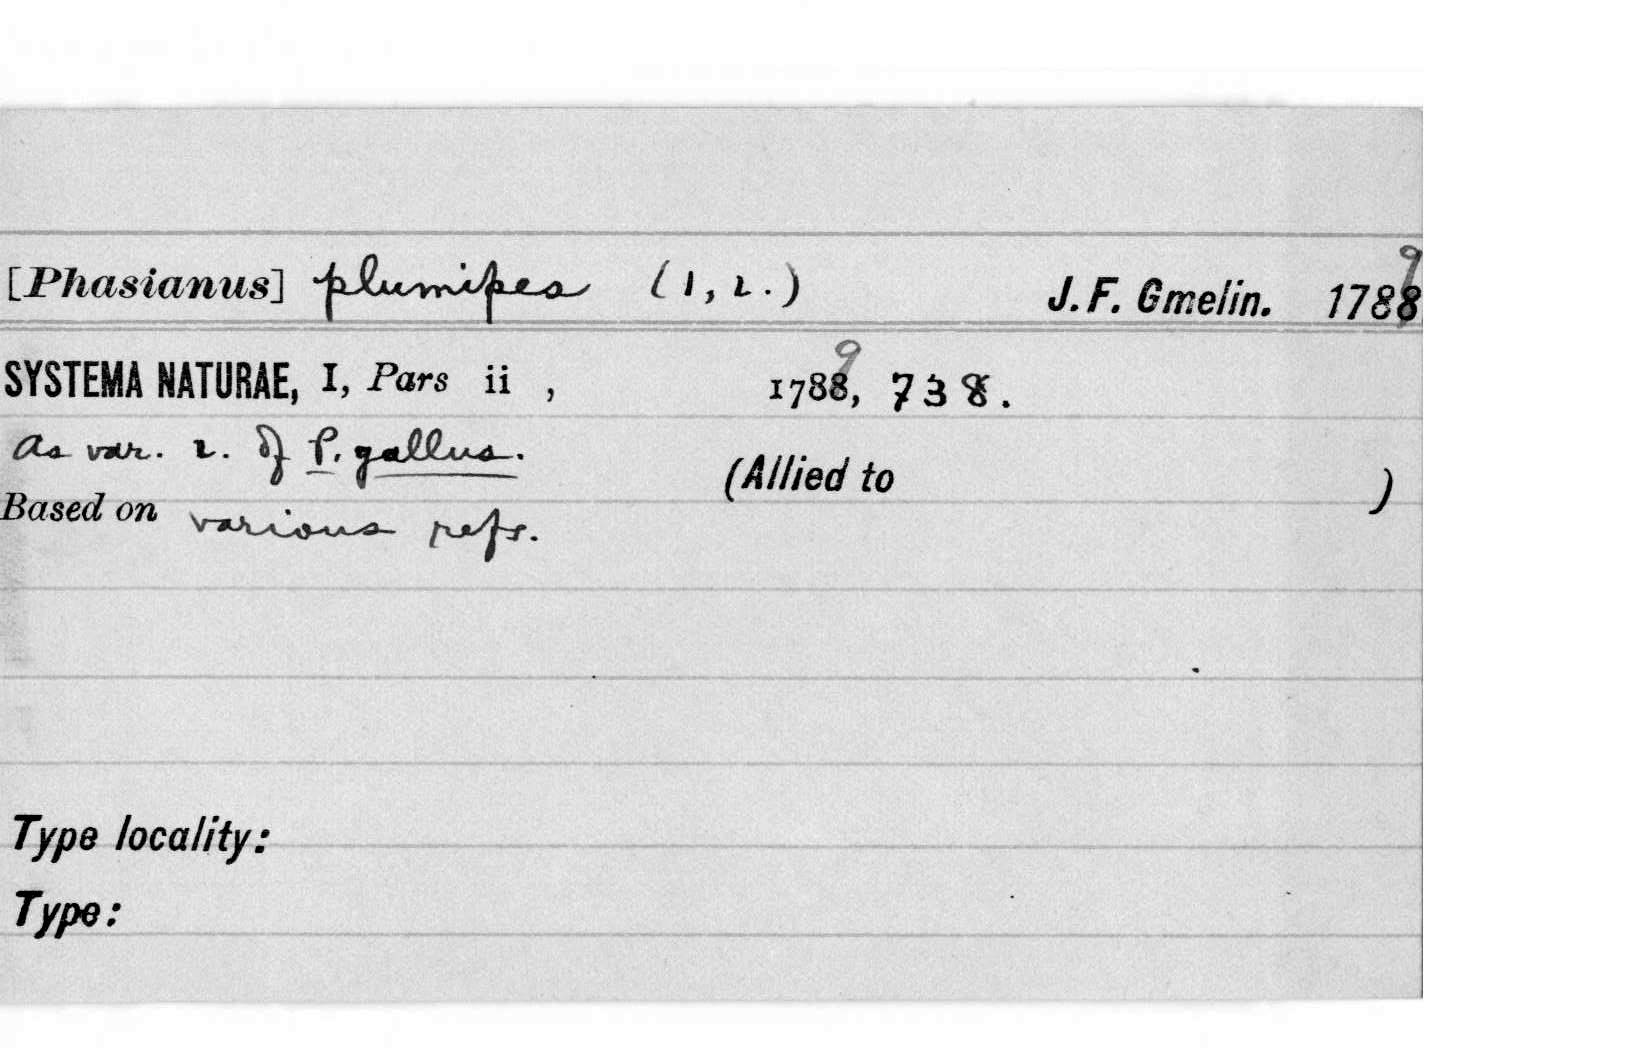 [Phasianus] plumipes (1, 2.) J. F. Gmelin. 1788 9
SYSTEMA NATURAE, I, Pars ii , 1788 9, 738.
As var. 2. of P. gallus. (Allied to )
Based on various refs.
Type locality:
Type: